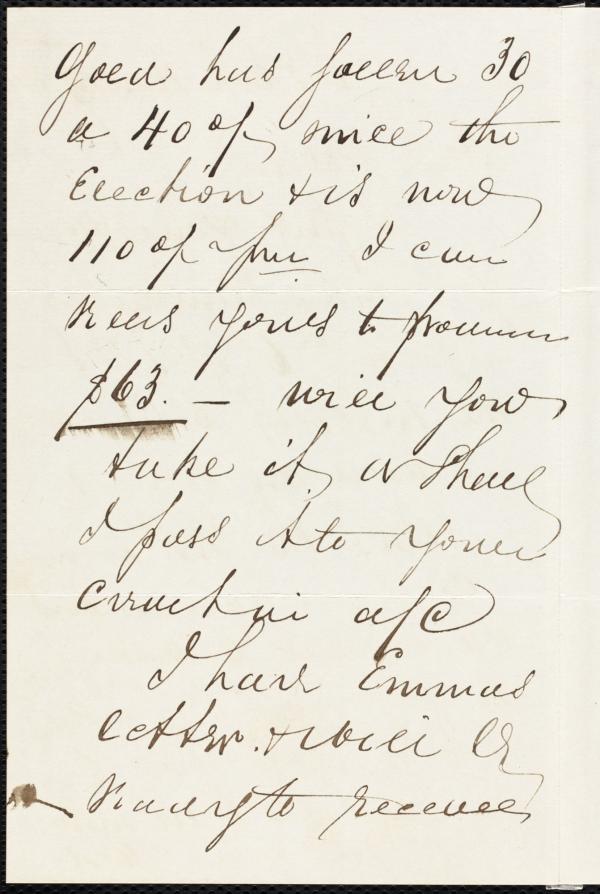 Gold has fallen 30
a 40 % since the
Election & is now
110 % pm I can
sell yours to
$63. — will you
take it, or shall
I pass it to your
credit in a/c
I have Emmas
letter. & will be
ready to receive